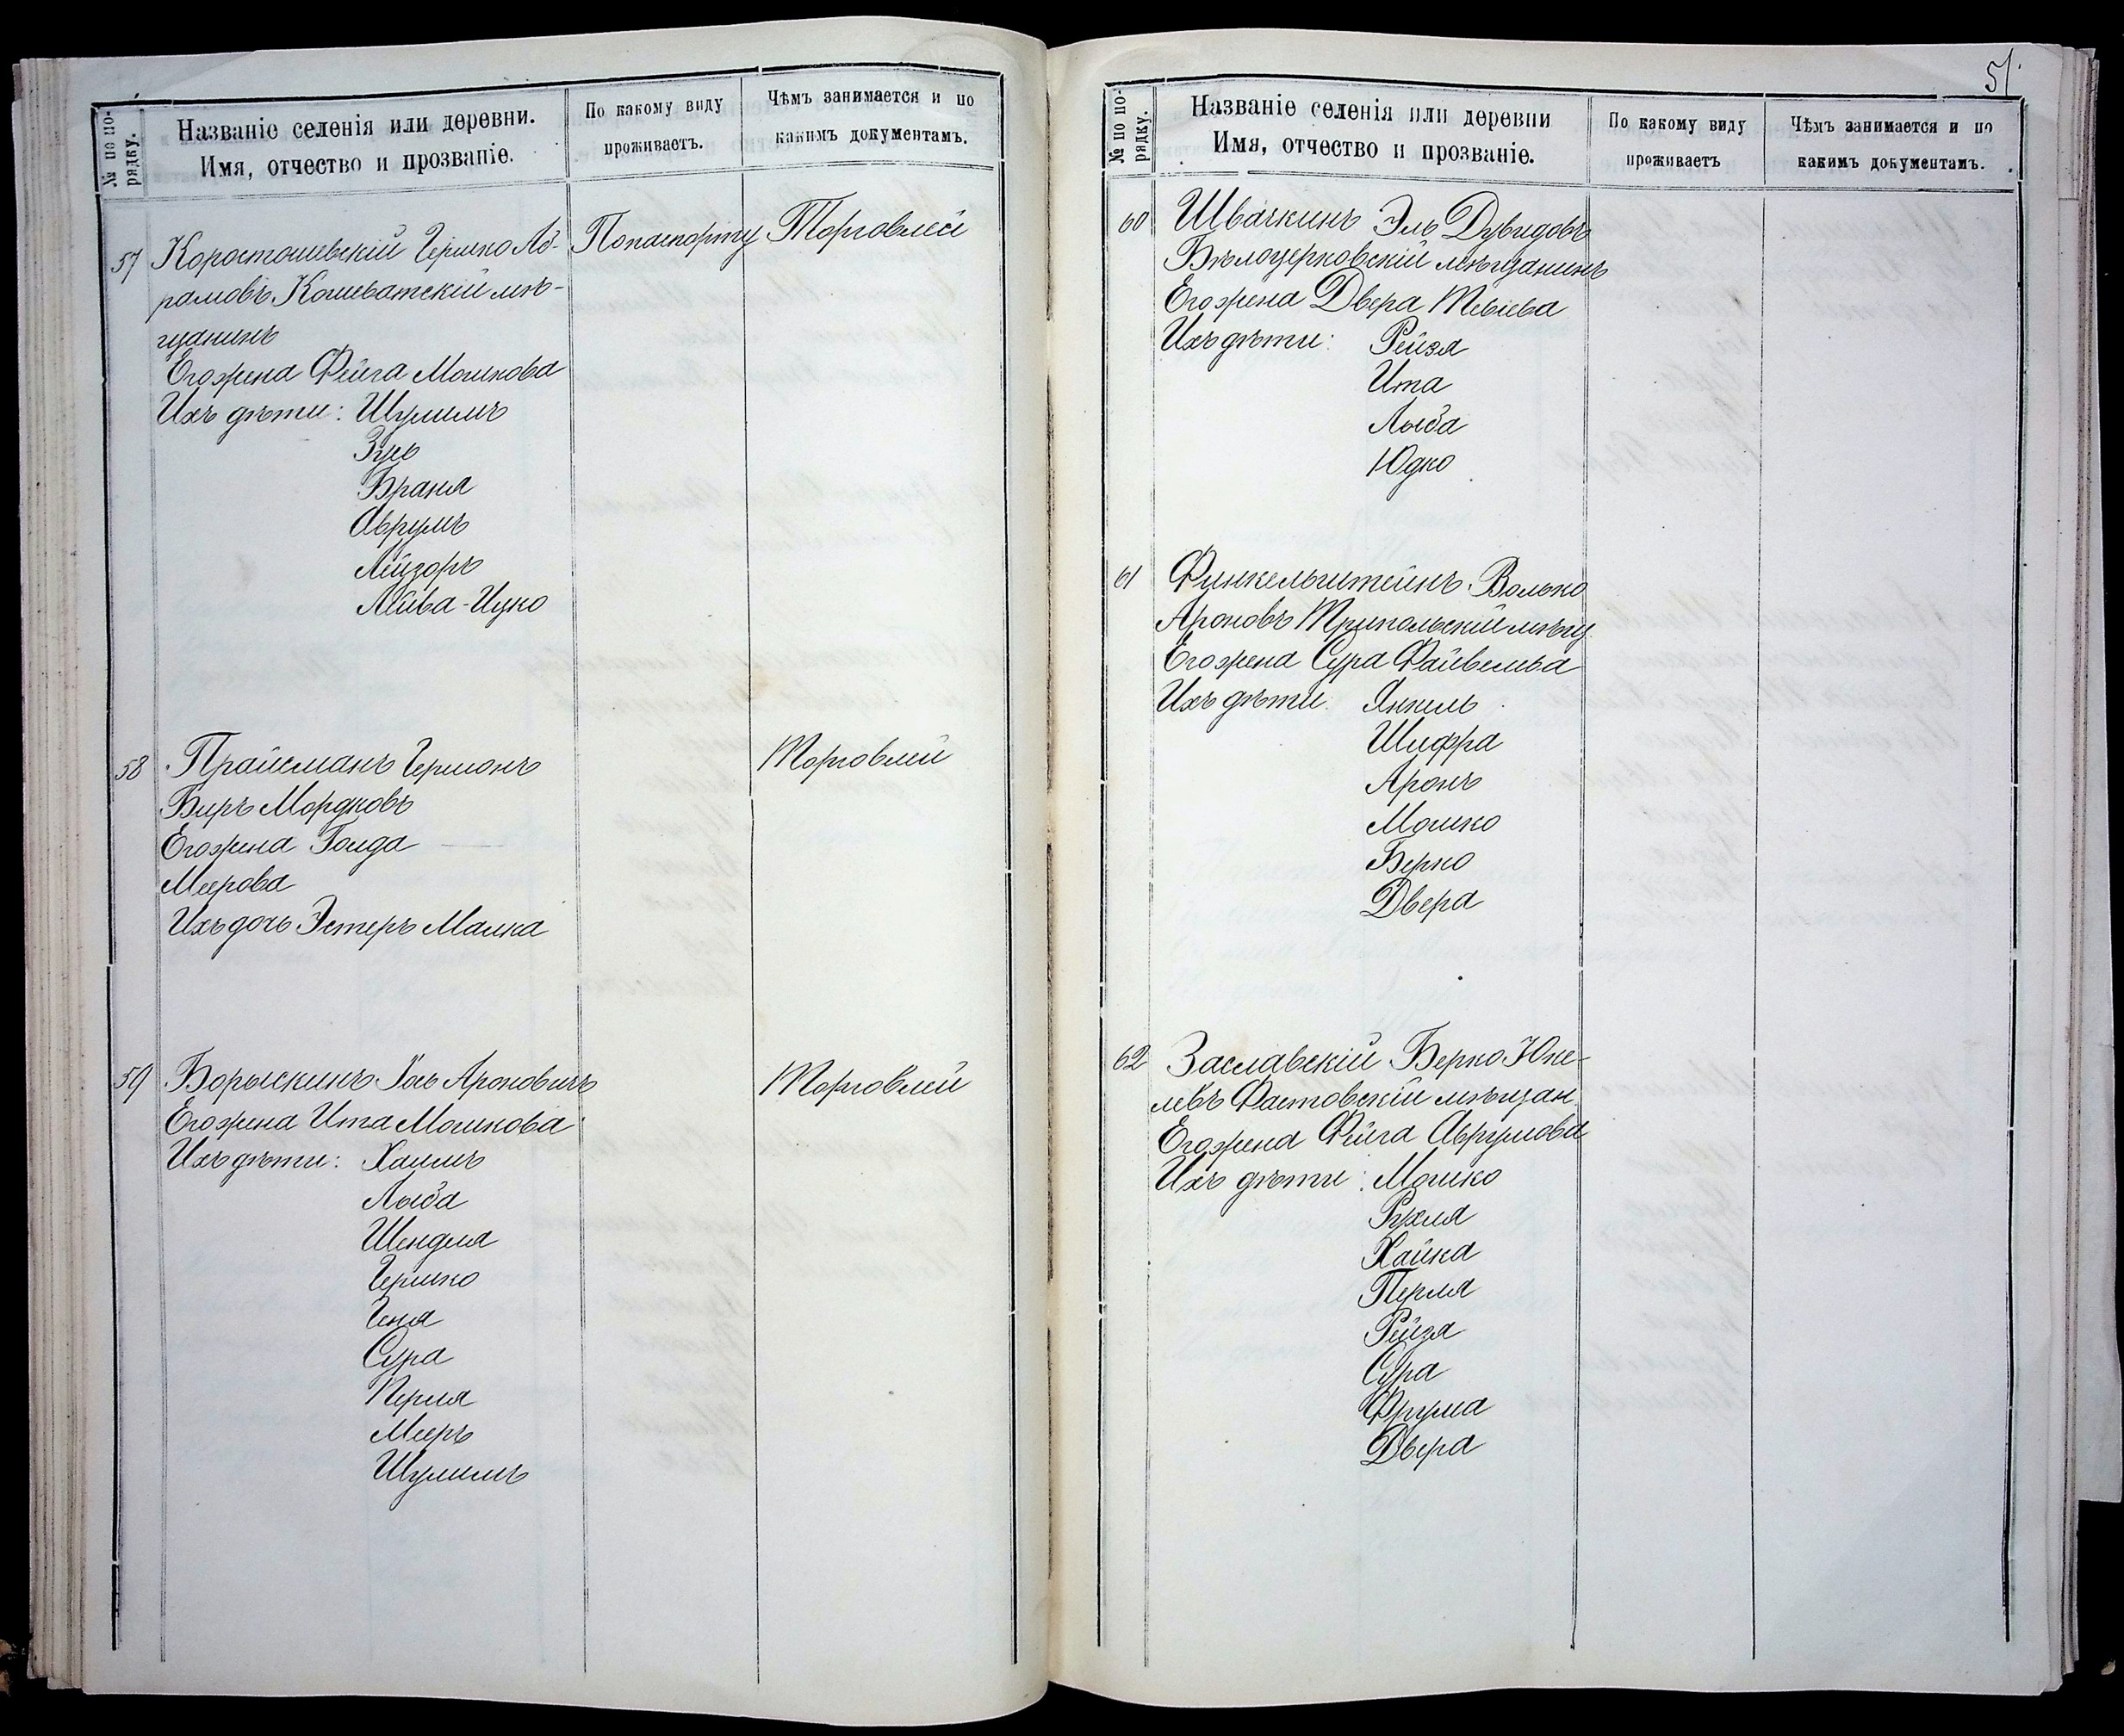 № по по-
рядку.
Названіе селенія или деревни.
Имя, отчество и прозваніе.
По какому виду
проживаетъ.
Чѣмъ занимается и по
какимъ документамъ.
57 Коростошевскій Гершко Аб- Попаспорту Торговлей
рамовъ Кошеватскій мѣ-
щанинъ
Его жена Фейга Мошкова
Ихъ дѣти: Шулимъ
Зусь
Браня
Аврумъ
Лейзоръ
Лейба-Ицко
58 Прайсманъ Гершонъ Торговлей
Биръ Мордковъ
Его жена Голда
Меерова
Ихъ дочь Эстеръ Малка
59 Борыскинъ Іось Ароновичъ Торговлей
Его жена Ита Мошкова
Ихъ дѣти: Хаимъ
Лыба
Шендля
Гершко
Геня
Сура
Перля
Мееръ
Шулимъ
51.
№ по по-
рядку.
Названіе селенія или деревни
Имя, отчество и прозваніе.
По какому виду
проживаетъ
Чѣмъ занимается и по
какимъ документамъ.
60 Швачкинъ Эль Дувидовъ
Бѣлоцерковскій мѣщанинъ
Его жена Двера Тевіева
Ихъ дѣти: Рейзя
Ита
Лыба
Юдко
61 Финкельштейнъ Волько
Ароновъ Трипольскій мѣщ.
Его жена Сура Файвельва
Ихъ дѣти: Янкель
Шифра
Аронъ
Мошко
Берко
Двера
62 Заславскій Берко Юке-
левъ Фастовскій мѣщан.
Его жена Фейга Аврумова
Ихъ дѣти: Мошко
Рухля
Хайка
Перля
Рейзя
Сура
Фрума
Двера